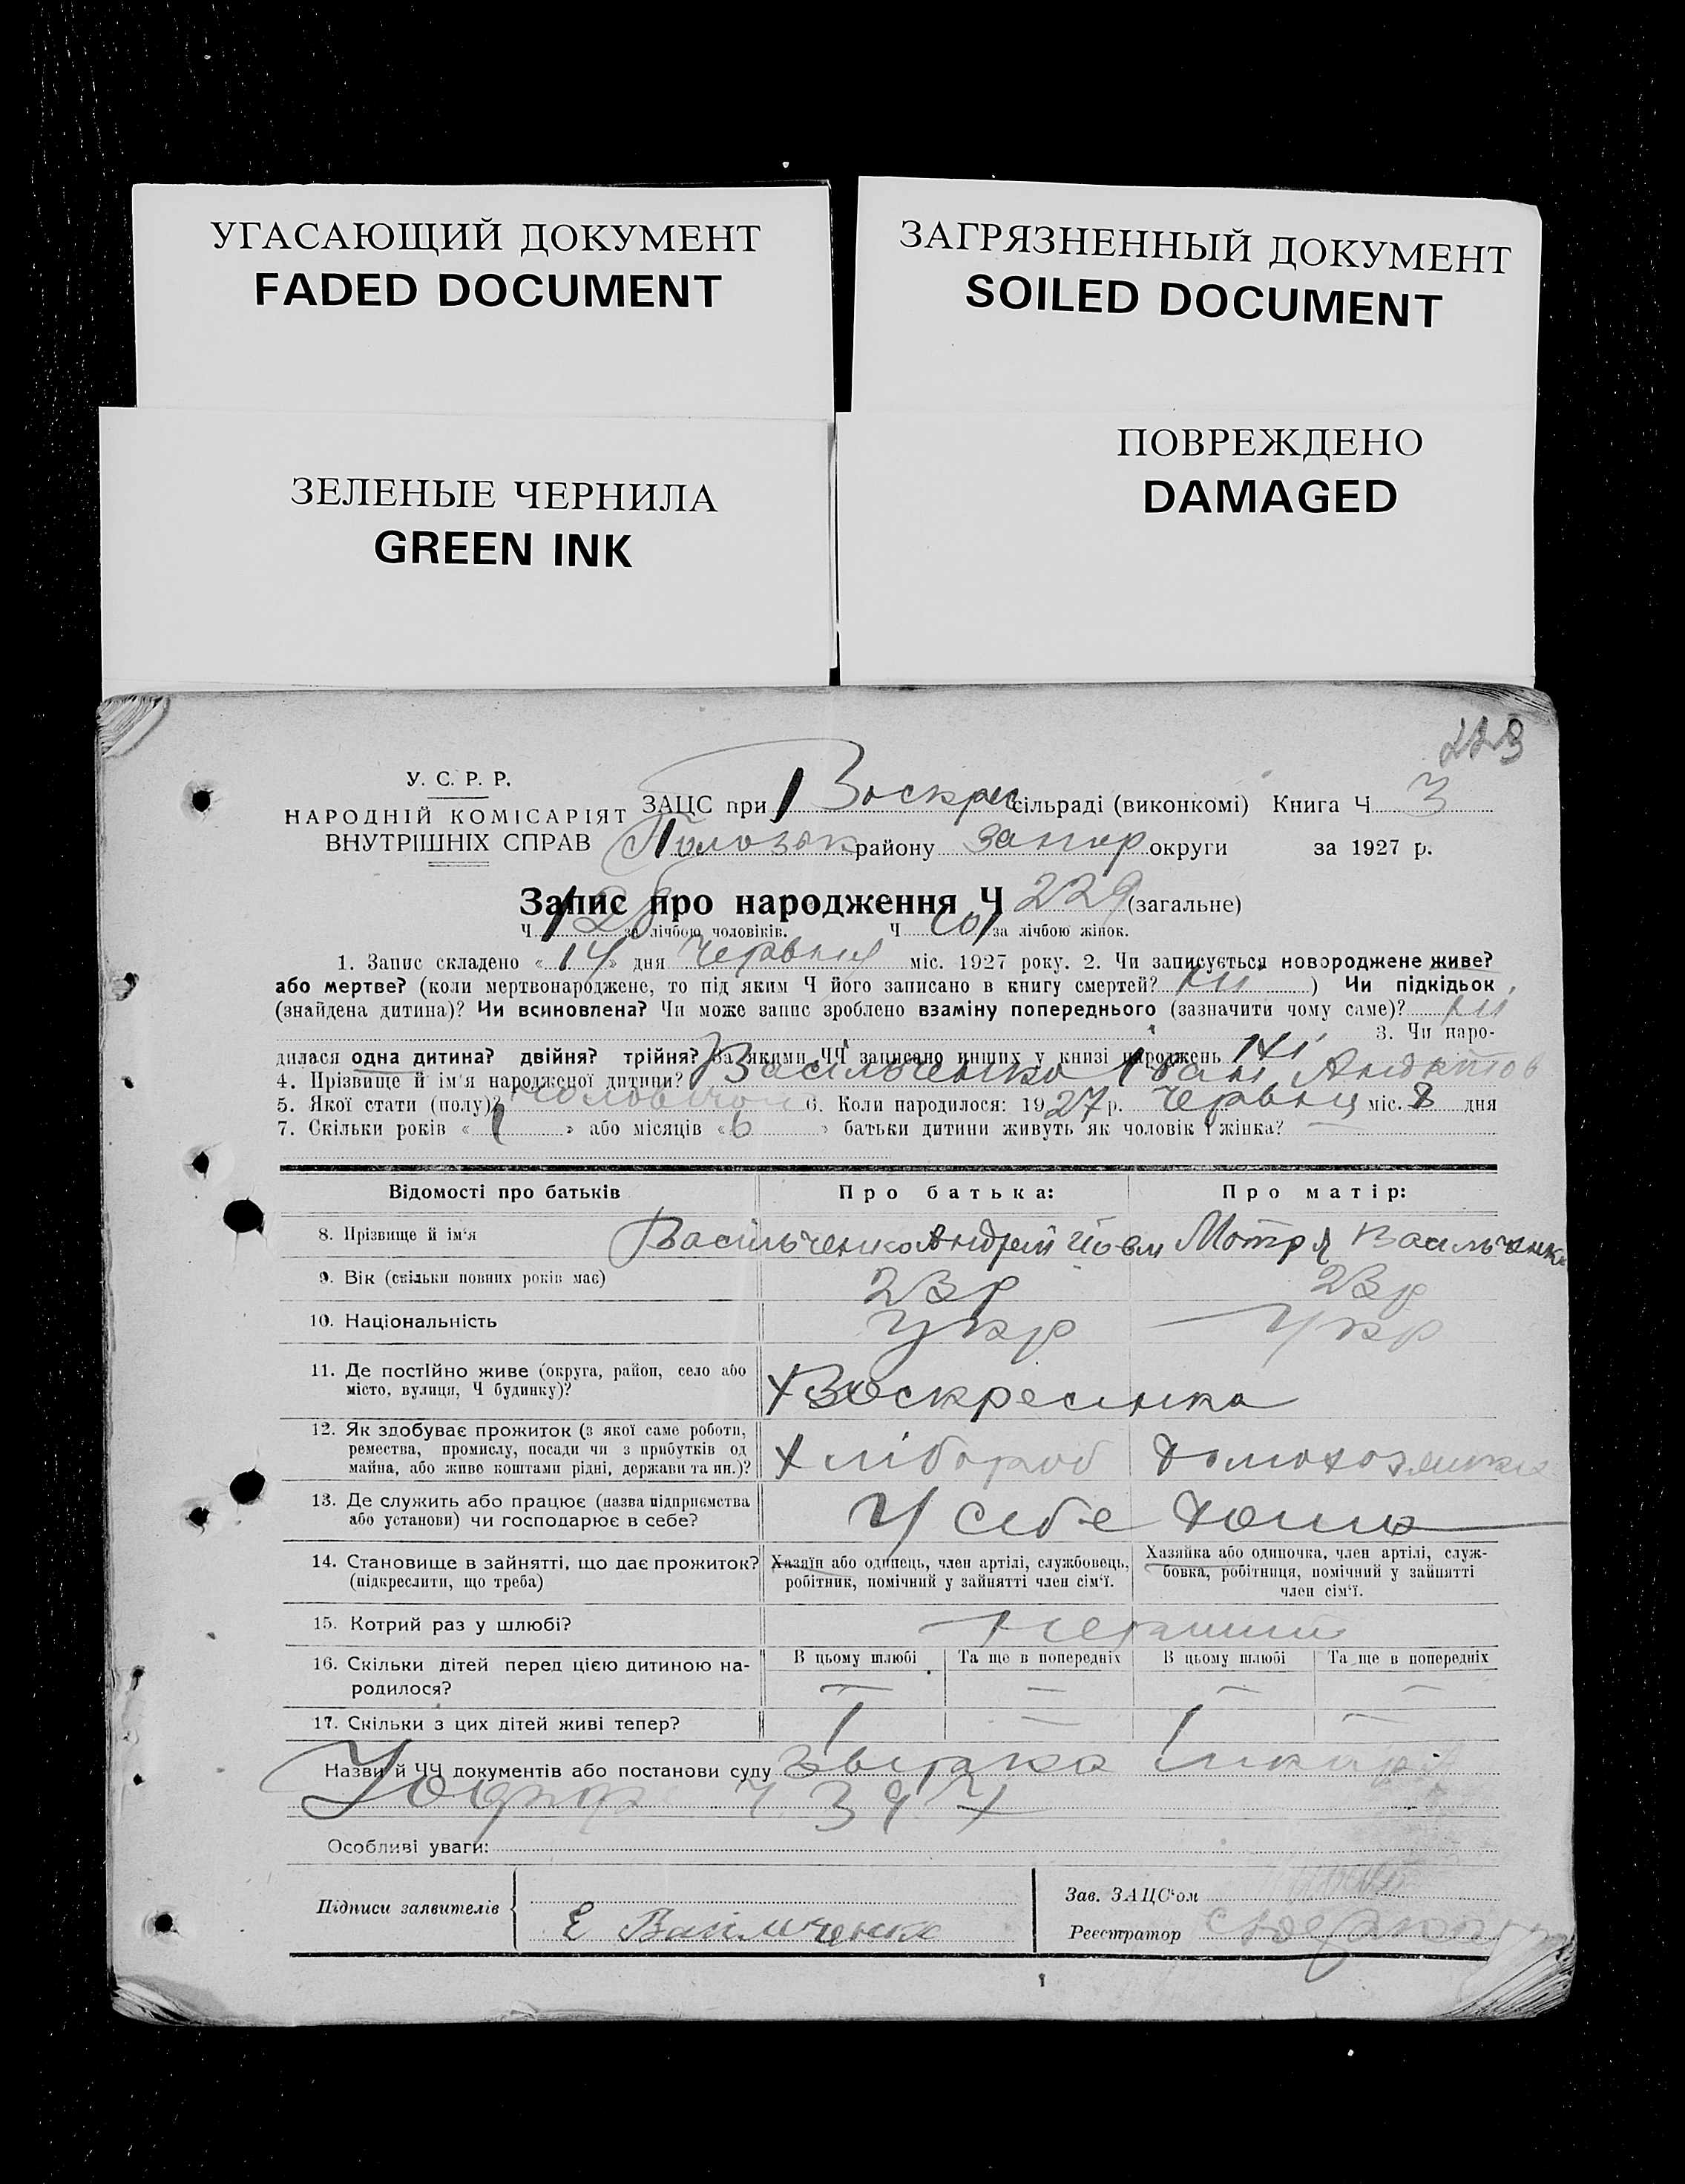 УГАСАЮЩИЙ ДОКУМЕНТ
FADED DOCUMENT
ЗАГРЯЗНЕННЫЙ ДОКУМЕНТ
SOILED DOCUMENT
ЗЕЛЕНЫЕ ЧЕРНИЛА
GREEN INK
ПОВРЕЖДЕНО
DAMAGED
У. С. Р. Р.
НАРОДНІЙ КОМІСАРІЯТ
ВНУТРІШНІХ СПРАВ
ЗАЦС при Воскрес сільраді (виконкомі) Книга Ч 3
району Запор округи за 1927 р.
Запис про народження Ч 229 (загальне)
Ч 128 за лічбою чоловіків. Ч 101 за лічбою жінок.
1. Запис складено « 14 » дня Червня міс. 1927 року. 2. Чи записується новороджене живе?
або мертве? (коли мертвонароджене, то під яким Ч його записано в книгу смертей? ) Чи підкідьок
(знайдена дитина)? Чи всиновлена? Чи може запис зроблено взаміну попереднього (зазначити чому саме)?
3. Чи наро-
дилася одна дитина? двійня? трійня? За якими ЧЧ записано инших у книзі народжень
4. Прізвище й ім'я народженої дитини? Васільченко Іван
5. Якої стати (полу)? 6. Коли народилося: 1927 р. Червня міс. 8 дня
7. Скільки років « 1 » або місяців « 6 » батьки дитини живуть як чоловік і жінка? —
Відомості про батьків
Про батька:
Про матір:
8. Прізвище й ім'я Васільченко Андрей Мотря Васильченко
9. Вік (скільки повних років має) 23 р 23 р
10. Національність Укр Укр
11. Де постійно живе (округа, район, село або
місто, вулиця, Ч будинку)? Воскресенка
12. Як здобуває прожиток (з якої саме роботи,
ремества, промислу, посади чи з прибутків од
майна, або живе коштами рідні, держави та ин.)? Хлібороб домохозяйка
13. Де служить або працює (назва підприємства
або установи) чи господарює в себе? У себе дома
14. Становище в зайнятті, що дає прожиток?
(підкреслити, що треба)
Хазяїн або одинець, член артілі, службовець,
робітник, помічний у зайнятті член сім'ї.
Хазяйка або одиночка, член артілі, служ-
бовка, робітниця, помічний у зайнятті
член сім'ї.
15. Котрий раз у шлюбі? первший
16. Скільки дітей перед цією дитиною на-
родилося?
В цьому шлюбі Та ще в попередніх В цьому шлюбі Та ще в попередніх
— — —
17. Скільки з цих дітей живі тепер? — —
Назви й ЧЧ документів або постанови суду
Особливі уваги:
Підписи заявителів
Е Васильченко
Зав. ЗАЦС'ом
Реєстратор